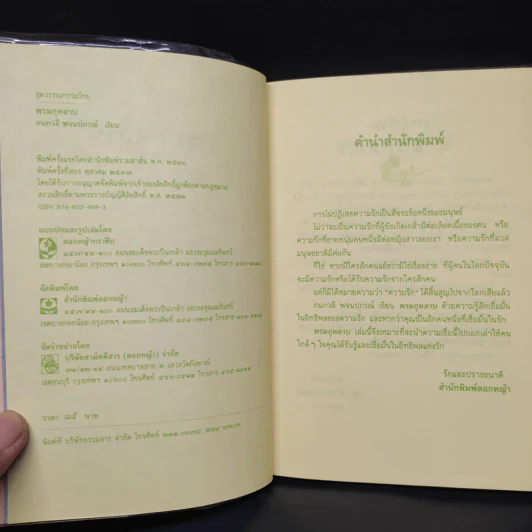 ชุดวรรณกรรมไทย
พรมกุหลาบ
กนกวลี พจนปกรณ์ เขียน
พิมพ์ครั้งแรกโดยสำนักพิมพ์รวมสาส์น พ.ศ.
พิมพ์ครั้งที่สอง ตุลาคม ๒๕๓๗
โดยได้รับการอนุญาตจัดพิมพ์จากเจ้าของลิขสิทธิ์ถูกต้องตามกฎหมาย
สงวนสิทธิ์ตามพระราชบัญญัติลิขสิทธิ์ พ.ศ. ๒๕๒๑
ISBN 974-602-466-3
แบบปกและรูปเล่มโดย
ดอกหญ้ากราฟิค
ถนนสมเด็จพระปิ่นเกล้า แขวงอรุณอมรินทร์
เขตบางกอกน้อย กรุงเทพฯ ๑๐๗๐๐ โทรศัพท์
จัดพิมพ์โดย
สำนักพิมพ์ดอกหญ้า
ถนนสมเด็จพระปิ่นเกล้า แขวงอรุณอมรินทร์
เขตบางกอกน้อย กรุงเทพฯ ๑๐๗๐๐ โทรศัพท์
จัดจำหน่ายโดย
บริษัทสามัคคีสาร (ดอกหญ้า) จำกัด
ถนนเทศบาลสาย ๒ แขวงวัดกัลยาณ์
เขตธนบุรี กรุงเทพฯ ๑๐๖๐๐ โทรศัพท์ โทรสาร
ราคา ๘๕ บาท
พิมพ์ที่ บริษัทธรรมสาร จำกัด โทรศัพท์
คำนำสำนักพิมพ์
การไม่ปฏิเสธความรักเป็นสัจจะข้อหนึ่งของมนุษย์
ไม่ว่าจะเป็นความรักที่ผู้บังเกิดเกล้ามีต่อเลือดเนื้อของตน หรือ
ความรักที่ชายหนุ่มคนหนึ่งมีต่อหญิงสาวของเขา หรือความรักที่มวล
มนุษยชาติมีต่อกัน
ก็ใช่ หากมีใครสักคนแย้งว่ามิใช่เรื่องง่าย ที่ผู้คนในโลกปัจจุบัน
จะมีความรักหรือได้รับความรักจากใครสักคน
แต่ก็มิได้หมายความว่า "ความรัก" ได้สิ้นสูญไปจากโลกเสียแล้ว
กนกวลี พจนปกรณ์ เขียน พรมกุหลาบ ด้วยความรู้สึกเชื่อมั่น
ในอิทธิพลของความรัก และหากว่าคุณเป็นอีกคนหนึ่งที่เชื่อมั้นในรัก
พรมกุหลาบ เล่มนี้จึงเหมาะที่จะนำความเชื่อนี้ไปบอกเล่าให้คน
ใกล้ๆ ใจคุณได้รับรู้และเชื่อมั่นในอิทธิพลแห่งรัก
รักและปรารถนาดี
สำนักพิมพ์ดอกหญ้า